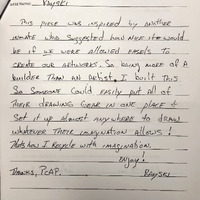 Rayski
This piece was inspired by another
inmate who suggested how nice it would
be if we were allowed easels to
create our artworks. So being more of a
builder than an artist, I built this
so someone could easily put all of
their drawing gear in one place &
set it up almost anywhere to draw
whatever their imagination allows!
Thats how I recycle with imagination.
Enjoy!
Thanks, PCAP. Rayski